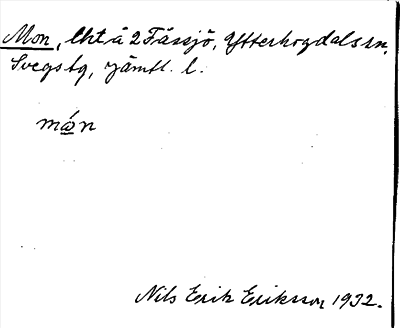 Mon, lht å 2 Fåssjö, Ytterhogdals sn,
Svegs tg, Jämtl. l.
må̀n
Nils Erik Eriksson 1932.